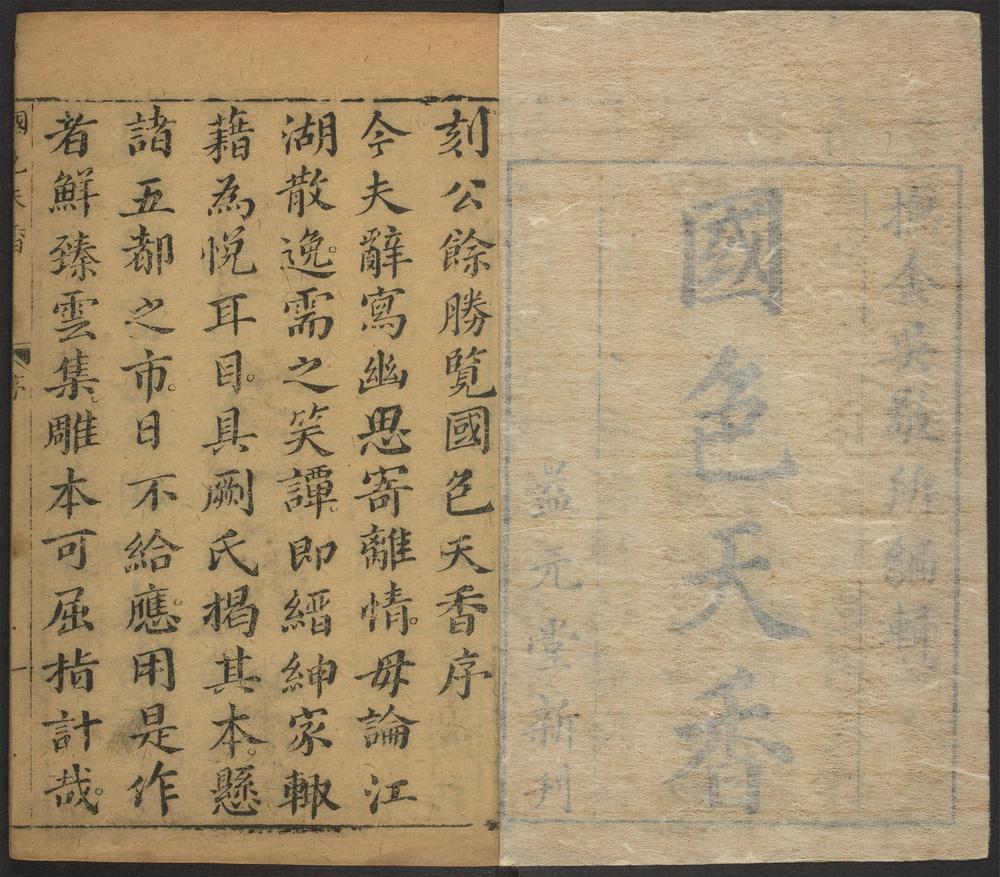 撫金吳敬所編輯
國色天香
益元堂新刋
刻公餘勝覽國色天香序
今夫辭寫幽思寄離情。毋論江
湖散逸。需之笑譚。即縉紳家輙
藉為悅耳目。具劂氏揭其本。懸
諸五都之市。日不給應。用是作
者鮮臻雲集。雕本可屈指計哉。
國色天香
序
一